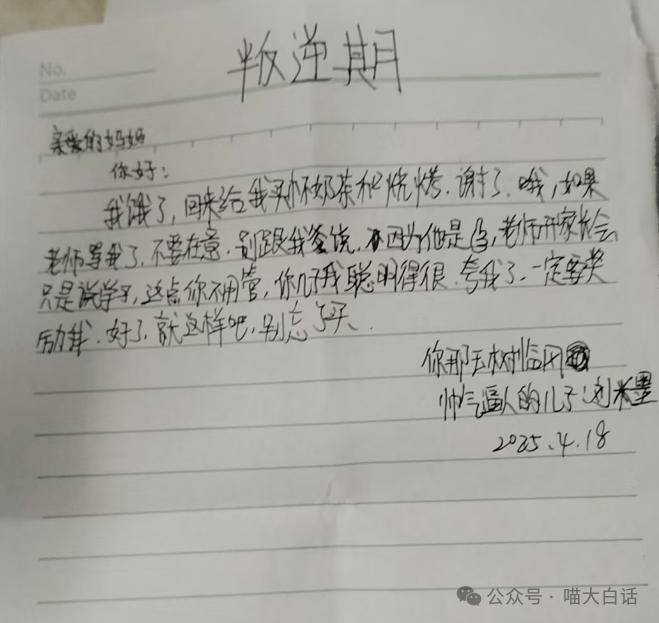 叛逆期
No.
Date
亲爱的妈妈
你好：
我饿了，回来给我买杯奶茶和烧烤．谢了．哦，如果
老师骂我了．不要在意．别跟我爸说．因为他是，老师开家长会
只是说学习，这点你不用管，你儿子我聪明得很．夸我了．一定要奖
励我．好了．就这样吧，别忘了
你那玉树临风
帅气逼人的儿子：刘
2025.4.18
公众号·喵大白话